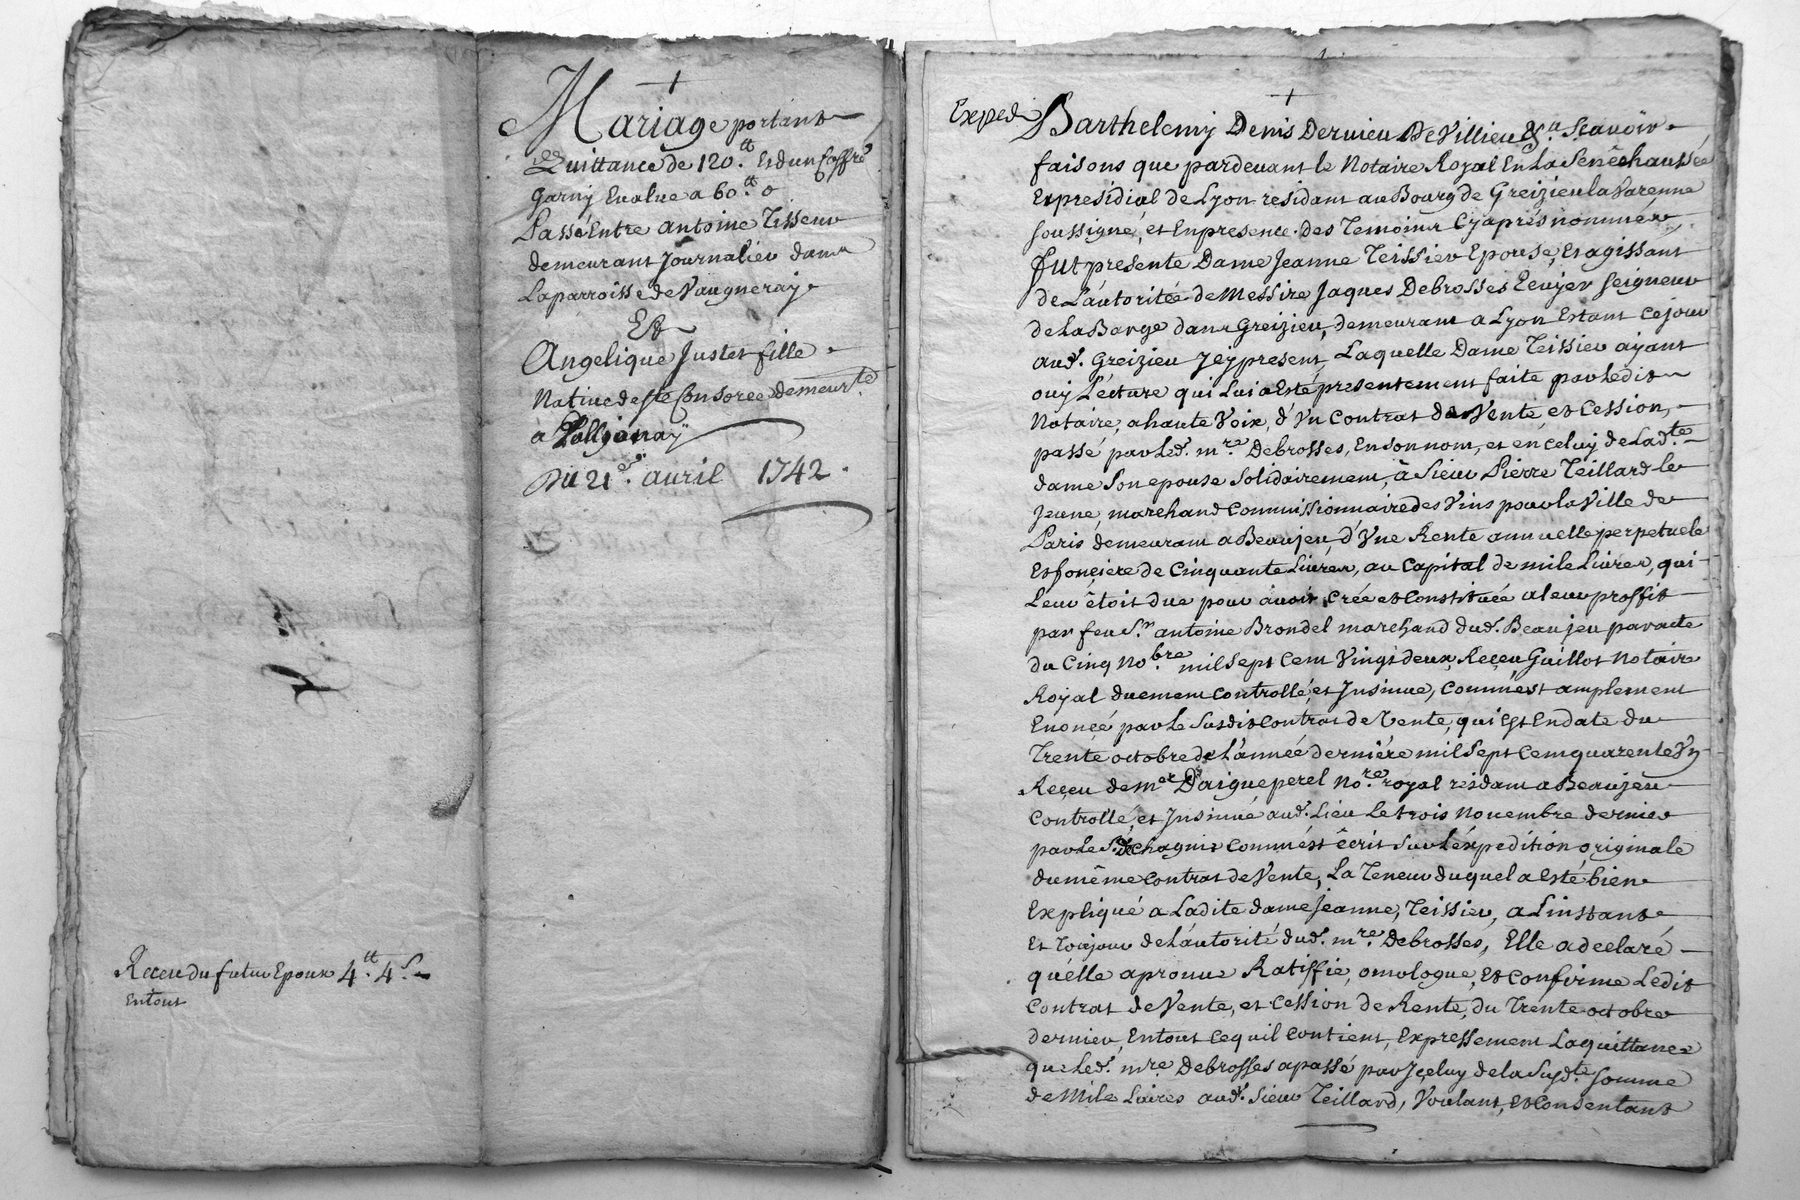 Mariage portant
Quittance de 120.tt Et d'un Coffre
garny Evalué a 60.tt
Passé Entre antoine Tisseur
demeurant Journalier dans
La parroisse de Vaugneray
Et
Angelique Juttet fille
Native de Ste Consorce demeurte.
a Pollionay
Du 21e. avril 1742.
Receu du futur Epoux 4.tt 4.s
Entout
Exped. Barthelemy Denis Dervieu De Villieu &a. Scavoir
faisons que pardevant le Notaire Royal En la Senéchaussée
Et presidial de Lyon residant au Bourg de Greizieu la Varenne
soussigné, et En presence des Temoins Cy aprés nommés
fut presente Dame Jeanne Teissier Epouse, Et agissant
de L'autoritée de Messire Jaques Debrosses Ecuyer Seigneur
de La Barge dans Greizieu, demeurant a Lyon Estant ce jour
aud. Greizieu Jcy present, Laquelle Dame Teissier ayant
ouy Lécture qui Lui a Esté presentement faite par Ledit
Notaire, a haute Voix, d'Vn Contrat de Vente et Cession,
passé par Led. mre. Debrosses, En son nom, et en celuy de Lad.te
dame Son epouse Solidairement, à Sieur Pierre Teillard le
Jeune, marchand Commissionnaire des Vins pour la Ville de
Paris demeurant a Beaujeu, d'Vne Rente annuelle perpetuele
Et fonciere de Cinquante Livres, au Capital de mile Livres, qui
Leur étoit due pour avoir crée et Constituée a leur proffit
par feu Sr. antoine Brondel marchand dud. Beaujeu par acte
du Cinq Nobre. mil Sept Cent Vingt deux, Receu Guillot Notaire
Royal duement Controllé, et Jnsinué, Comm'est amplement
Enoncé par le Susdit Contrat de Vente, qui Est En date du
Trente octobre de L'année derniére mil Sept Cent quarente Vn
Receu de mer Daigueperel Nore. royal residant a Beaujeu
Controllé, et Jnsinué aud. Lieu Le trois Novembre dernier
par le Sr. Dechagnis Comm'ést écrit Sur L'éxpedition originale
du même Contrat de Vente, La Teneur duquel a Esté bien
Expliqué a Ladite dame Jeanne, Teissier, a L'instant
Et Toujour de L'autorité dud. mre. Debrosses, Elle a declaré
qu'élle aprouve Ratiffie, omologue, Et Confirme Ledit
Contrat de Vente, et Cession de Rente, du Trente octobre
dernier, En tout ce quil Contient, Expressement La quittance
que Led. mre. Debrosses a passé par Jceluy de la Susd.te Somme
de Mile Livres aud. Sieur Teillard, Voulant, Et Consentant